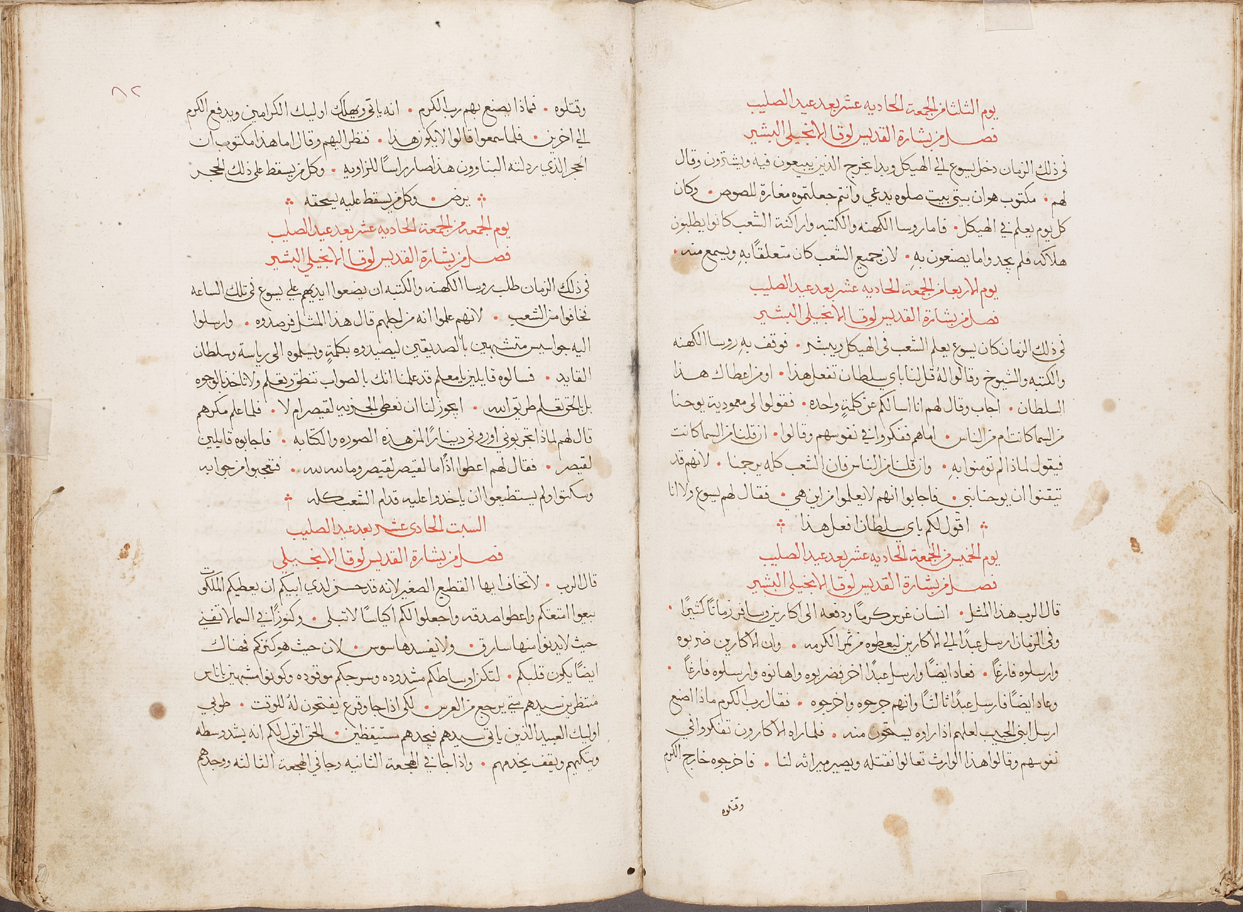 يوم الثلثا من الجمعة الحاديه عشر بعد عيد الصليب
فصل من بشارة القديس لوقا الانجيلي البشير
في ذلك الزمان دخل يسوع الي الهيكل وبدا يخرج الذين يبيعون فيه ويشترون وقال
لهم • مكتوب هو ان بيتي بيت صلوه يدعي وانتم جعلتموه مغارة للصوص • وكان
كل يوم يعلم في الهيكل • فاما روسا الكهنه والكتبه واراكنة الشعب كانوا يطلبون
هلاكه فلم يجدوا ما يصنعون به • لان جميع الشعب كان متعلقًا به ويسمع منه •
يوم الاربعا من الجمعة الحاديه عشر بعد عيد الصليب
فصل من بشارة القديس لوقا الانجيلي البشير
في ذلك الزمان كان يسوع يعلم الشعب في الهيكل ويبشر • فوقف به روسا الكهنه
والكتبه والشيوخ وقالوا له قل لنا باي سلطان تفعل هذا • او من اعطاك هذا
السلطان • اجاب وقال لهم انا اسالكم عن كلمةٍ واحده • فقولوا لي معمودية يوحنا
من السما كانت ام من الناس • اما هم ففكروا في نفوسهم وقالوا • ان قلنا من السما كانت
فيقول لماذا لم تومنوا به • وان قلنا من الناس فان الشعب كله يرجمنا • لانهم قد
تيقنوا ان يوحنا نبي • فاجابوا انهم لا يعلموا من اين هي • فقال لهم يسوع ولا انا
اقول لكم باي سلطان افعل هذا
يوم الخميس من الجمعة الحاديه عشر بعد عيد الصليب
فصل من بشارة القديس لوقا الانجيلي البشير
قال الرب هذا المثل • انسان غرس كرمًا ودفعه الي اكارين وسافر زمانًا كثيرًا •
وفي الزمان ارسل عبدًا الي الاكارين ليعطوه من ثمر الكرمه • وان الاكارين ضربوه
وارسلوه فارغًا • فعاد ايضًا وارسل عبدًا اخر فضربوه واهانوه وارسلوه فارغًا •
وعاد ايضًا فارسل عبدًا ثالثًا وانهم جرحوه واخرجوه • فقال رب الكرم ماذا اصنع
ارسل ابني الحبيب لعلهم اذا راوه يستحيون منه • فلما راه الاكارون تفكروا في
نفوسهم وقالوا هذا الوارث تعالوا نقتله ويصير ميراثه لنا • فاخرجوه خارج الكرم
وقتلوه
٨٢
وقتلوه • فماذا يصنع بهم رب الكرم • انه ياتي ويهلك اوليك الكرامين ويدفع الكرم
الي اخرين • فلما سمعوا قالوا لا يكون هذا • فنظر اليهم وقال اما هذا مكتوب ان
الحجر الذي رذلته البناوون هذا صار راسًا للزاويه • وكل من يسقط علي ذلك الحجر
يرض • وكل من يسقط عليه يسحقه
يوم الجمعه من الجمعة الحاديه عشر بعد عيد الصليب
فصل من بشارة القديس لوقا الانجيلي البشير
في ذلك الزمان طلب روسا الكهنه والكتبه ان يضعوا ايديهم علي يسوع في تلك الساعه
فخافوا من الشعب • لانهم علموا انه من اجلهم قال هذا المثل فرصدوه • وارسلوا
اليه جواسيس متشبهين بالصديقين ليصيدوه بكلمةٍ ويسلموه الي رياسة وسلطان
القايد • فسالوه قايلين يا معلم قد علمنا انك بالصواب تنطق وتعلم ولا تاخذ بالوجوه
بل بالحق تعلم طريق الله • ايجوز لنا ان نعطي الجزيه لقيصر ام لا • فلما علم مكرهم
قال لهم لماذا تجربوني اوروني دينارًا لمن هذه الصوره والكتابه • فاجابوه قايلين
لقيصر • فقال لهم اعطوا اذًا ما لقيصر لقيصر وما لله لله • فتعجبوا من جوابه
وسكتوا ولم يستطيعوا ان ياخذوا عليه قدام الشعب كله
السبت الحادي عشر بعد عيد الصليب
فصل من بشارة القديس لوقا الانجيلي
قال الرب • لا تخاف ايها القطيع الصغير لانه قد حسن لدي ابيكم ان يعطيكم الملكوت
بيعوا امتعتكم واعطوا صدقه واجعلوا لكم اكياسًا لا تبلي • وكنوزًا في السما لا تفني
حيث لا يدنوا منها سارق • ولا يفسدها سوس • لان حيث هو كنزكم فهناك
ايضًا يكون قلبكم • لتكن اوساطكم مشدوده وسرجكم موقوده وكونوا متشبهين باناس
منتظرين سيدهم متي يرجع من العرس • لكي اذا جا وقرع يفتحون له للوقت • طوبي
اوليك العبيد الذين ياتي سيدهم فيجدهم مستيقظين • الحق اقول لكم انه يشد وسطه
ويتكيهم ويقف يخدمهم • واذا جا في الهجعة الثانيه وجا في الهجعة الثالثه ووجدهم